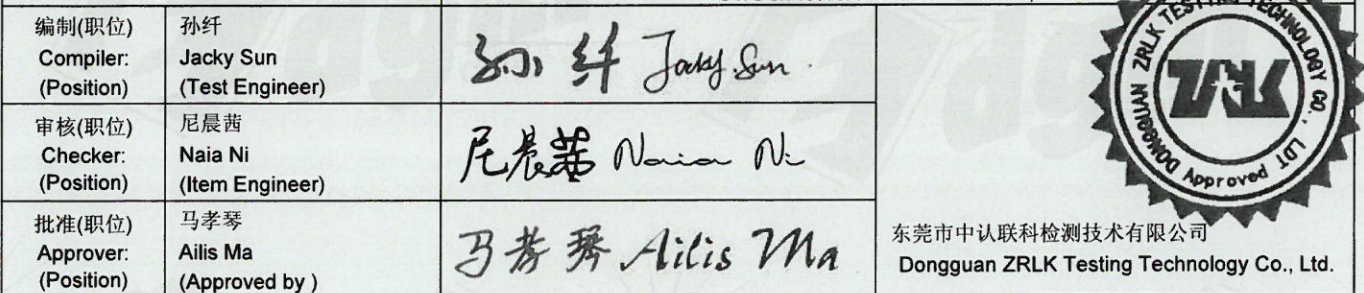 编制(职位)
Compiler:
(Position)
孙纤
Jacky Sun
(Test Engineer)
孙纤 Jacky Sun
审核(职位)
Checker:
(Position)
尼晨茜
Naia Ni
(Item Engineer)
尼晨茜 Naia Ni
批准(职位)
Approver:
(Position)
马孝琴
Ailis Ma
(Approved by )
马孝琴 Ailis Ma
DONGGUAN ZRLK TESTING TECHNOLOGY CO., LDT
ZRLK
Approved
东莞市中认联科检测技术有限公司
Dongguan ZRLK Testing Technology Co., Ltd.